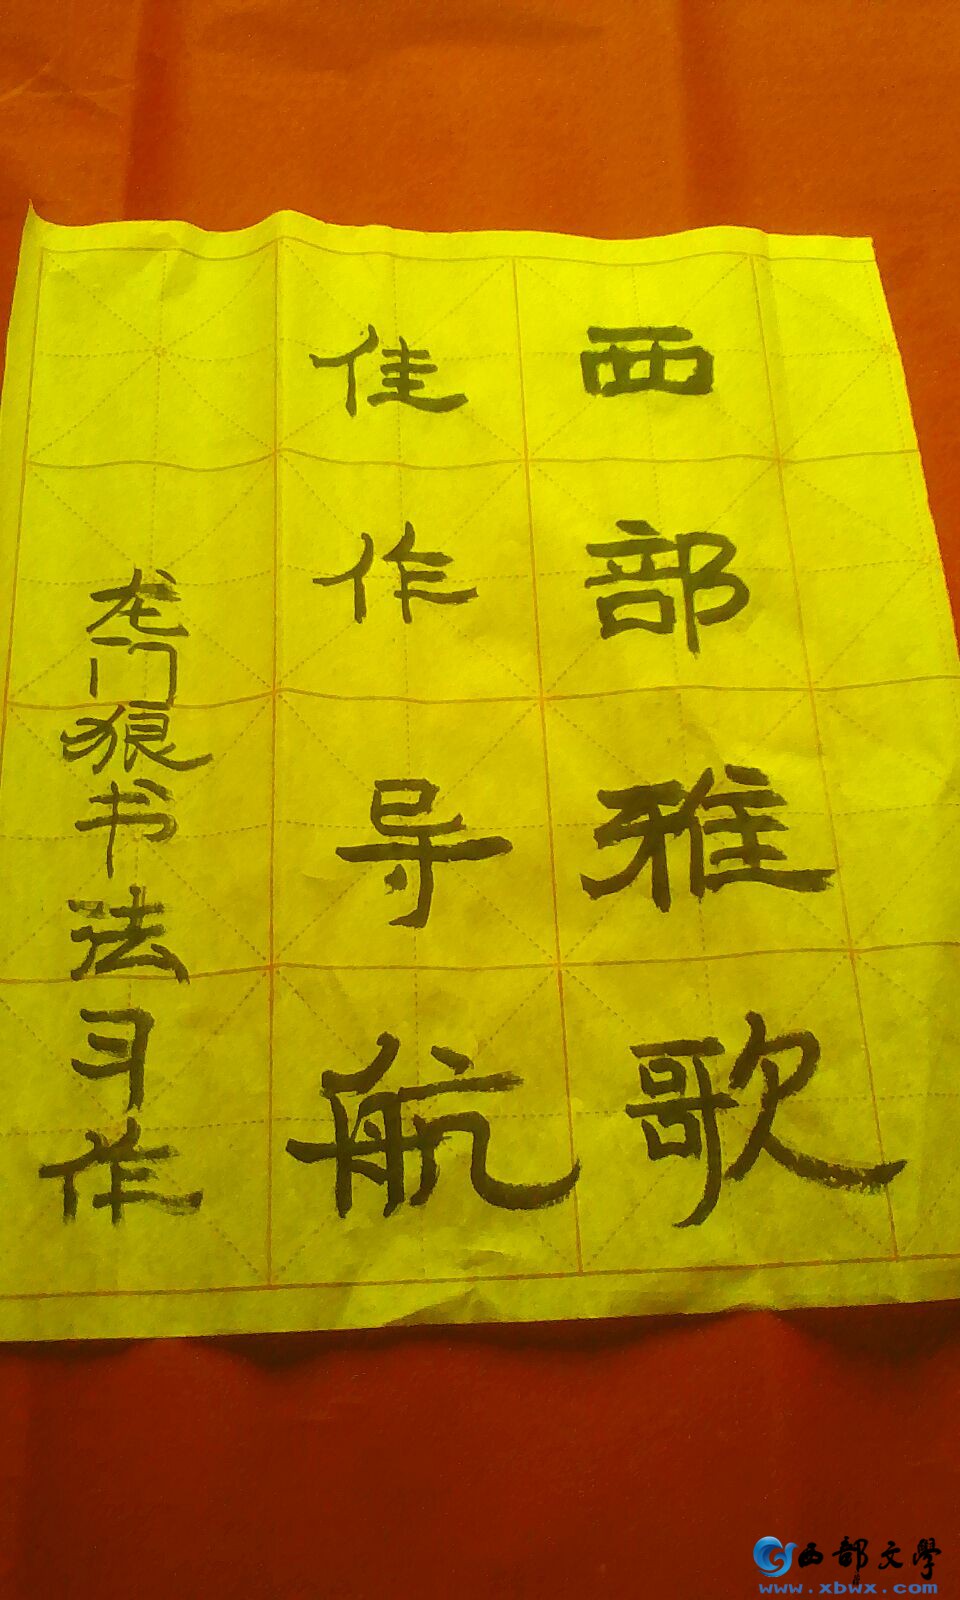 西部雅歌
佳作导航
龙门狼书法习作
西部文學
www.xbwx.com